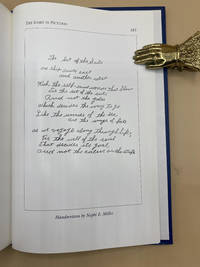 THE STORY IN PICTURES
The Set of the Sails
One ship sails east
and another west
With the self-same winds that blow
'Tis the set of the sails
And not the gales
which decides the way to go
Like the winds of the sea
are the ways of fate
as we voyage along through life,
'Tis the will of the soul
That decides its goal,
and not the calm or the strife
Handwritten by E. Miller